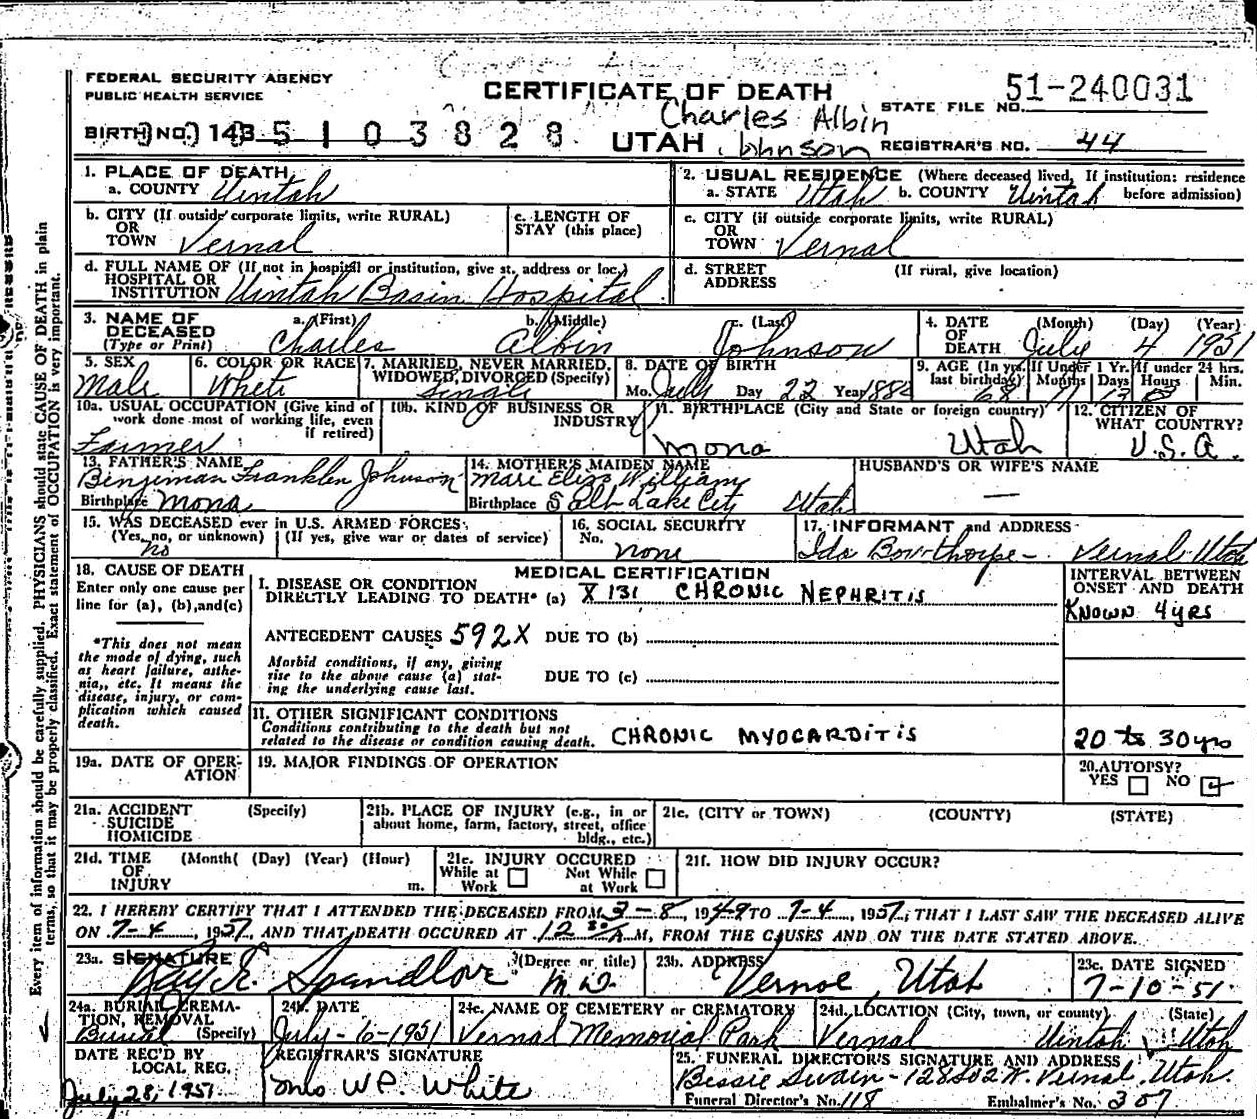 FEDERAL SECURITY AGENCY
PUBLIC HEALTH SERVICE
CERTIFICATE OF DEATH
UTAH
Charles Albin
Johnson
STATE FILE NO. 51-240031
REGISTRAR'S NO. 44
BIRTH NO. 143
5 1 0 3 8 2 8
1. PLACE OF DEATH
a. COUNTY Uintah
2. USUAL RESIDENCE (Where deceased lived. If institution: residence before admission)
a. STATE Utah b. COUNTY Uintah
b. CITY (If outside corporate limits, write RURAL)
OR
TOWN Vernal
c. LENGTH OF
STAY (this place)
c. CITY (if outside corporate limits, write RURAL)
OR
TOWN Vernal
d. FULL NAME OF (If not in hospital or institution, give st. address or loc.)
HOSPITAL OR
INSTITUTION Uintah Basin Hospital
d. STREET
ADDRESS
(If rural, give location)
3. NAME OF
DECEASED
(Type or Print)
a. (First) Charles
b. (Middle) Albin
c. (Last) Johnson
4. DATE
OF
DEATH
(Month) (Day) (Year)
July 4 1951
5. SEX
Male
6. COLOR OR RACE
White
7. MARRIED, NEVER MARRIED,
WIDOWED, DIVORCED (Specify)
Single
8. DATE OF BIRTH
Mo. July Day 22 Year
9. AGE (In yrs. last birthday)
68
If Under 1 Yr. If under 24 hrs.
Months Days Hours Min.
11 13
10a. USUAL OCCUPATION (Give kind of
work done most of working life, even
if retired)
Farmer
10b. KIND OF BUSINESS OR
INDUSTRY
11. BIRTHPLACE (City and State or foreign country)
Mona Utah
12. CITIZEN OF
WHAT COUNTRY?
U.S.A.
13. FATHER'S NAME
Benjeman Franklin Johnson
Birthplace Mona
14. MOTHER'S MAIDEN NAME
Mary Eliza Williams
Birthplace Salt Lake City Utah
HUSBAND'S OR WIFE'S NAME
—
15. WAS DECEASED ever in U.S. ARMED FORCES.
(Yes, no, or unknown) (If yes, give war or dates of service)
no
16. SOCIAL SECURITY
No.
none
17. INFORMANT and ADDRESS
Ida Bowthorpe - Vernal Utah
18. CAUSE OF DEATH
Enter only one cause per
line for (a), (b), and (c)
*This does not mean
the mode of dying, such
as heart failure, asthe-
nia, etc. It means the
disease, injury, or com-
plication which caused
death.
MEDICAL CERTIFICATION
I. DISEASE OR CONDITION
DIRECTLY LEADING TO DEATH* (a) X 131 CHRONIC NEPHRITIS
ANTECEDENT CAUSES 592X DUE TO (b)
Morbid conditions, if any, giving
rise to the above cause (a) stat-
ing the underlying cause last.
DUE TO (c)
INTERVAL BETWEEN
ONSET AND DEATH
KNOWN 4 yrs
11. OTHER SIGNIFICANT CONDITIONS
Conditions contributing to the death but not
related to the disease or condition causing death.
CHRONIC MYOCARDITIS
20 to 30 yrs
19a. DATE OF OPER-
ATION
19. MAJOR FINDINGS OF OPERATION
20. AUTOPSY?
YES NO
21a. ACCIDENT
SUICIDE
HOMICIDE
(Specify)
21b. PLACE OF INJURY (e.g., in or
about home, farm, factory, street, office
bldg., etc.)
21c. (CITY or TOWN) (COUNTY) (STATE)
21d. TIME
OF
INJURY
(Month( (Day) (Year) (Hour)
m.
21e. INJURY OCCURED
While at
Work
Not While
at Work
21f. HOW DID INJURY OCCUR?
22. I HEREBY CERTIFY THAT I ATTENDED THE DECEASED FROM 3-8, 1949 TO 7-4, 1951, THAT I LAST SAW THE DECEASED ALIVE
ON 7-4, 1951, AND THAT DEATH OCCURED AT 12 30 A M, FROM THE CAUSES AND ON THE DATE STATED ABOVE.
23a. SIGNATURE
Ray E. Spendlove
(Degree or title)
M.D.
23b. ADDRESS
Vernal, Utah
23c. DATE SIGNED
7-10-51
24a. BURIAL, CREMA-
TION, REMOVAL
(Specify)
Burial
24b. DATE
July-6-1951
24c. NAME OF CEMETERY or CREMATORY
Vernal Memorial Park
24d. LOCATION (City, town, or county) (State)
Vernal Uintah Utah
DATE REC'D BY
LOCAL REG.
July 28, 1951
REGISTRAR'S SIGNATURE
Mrs W P. White
25. FUNERAL DIRECTOR'S SIGNATURE AND ADDRESS
Bessie Swain - 128 So 2 W. Vernal, Utah.
Funeral Director's No. 118 Embalmer's No. 307
Every item of information should be carefully supplied. PHYSICIANS should state CAUSE OF DEATH in plain
terms, so that it may be properly classified. Exact statement of OCCUPATION is very important.